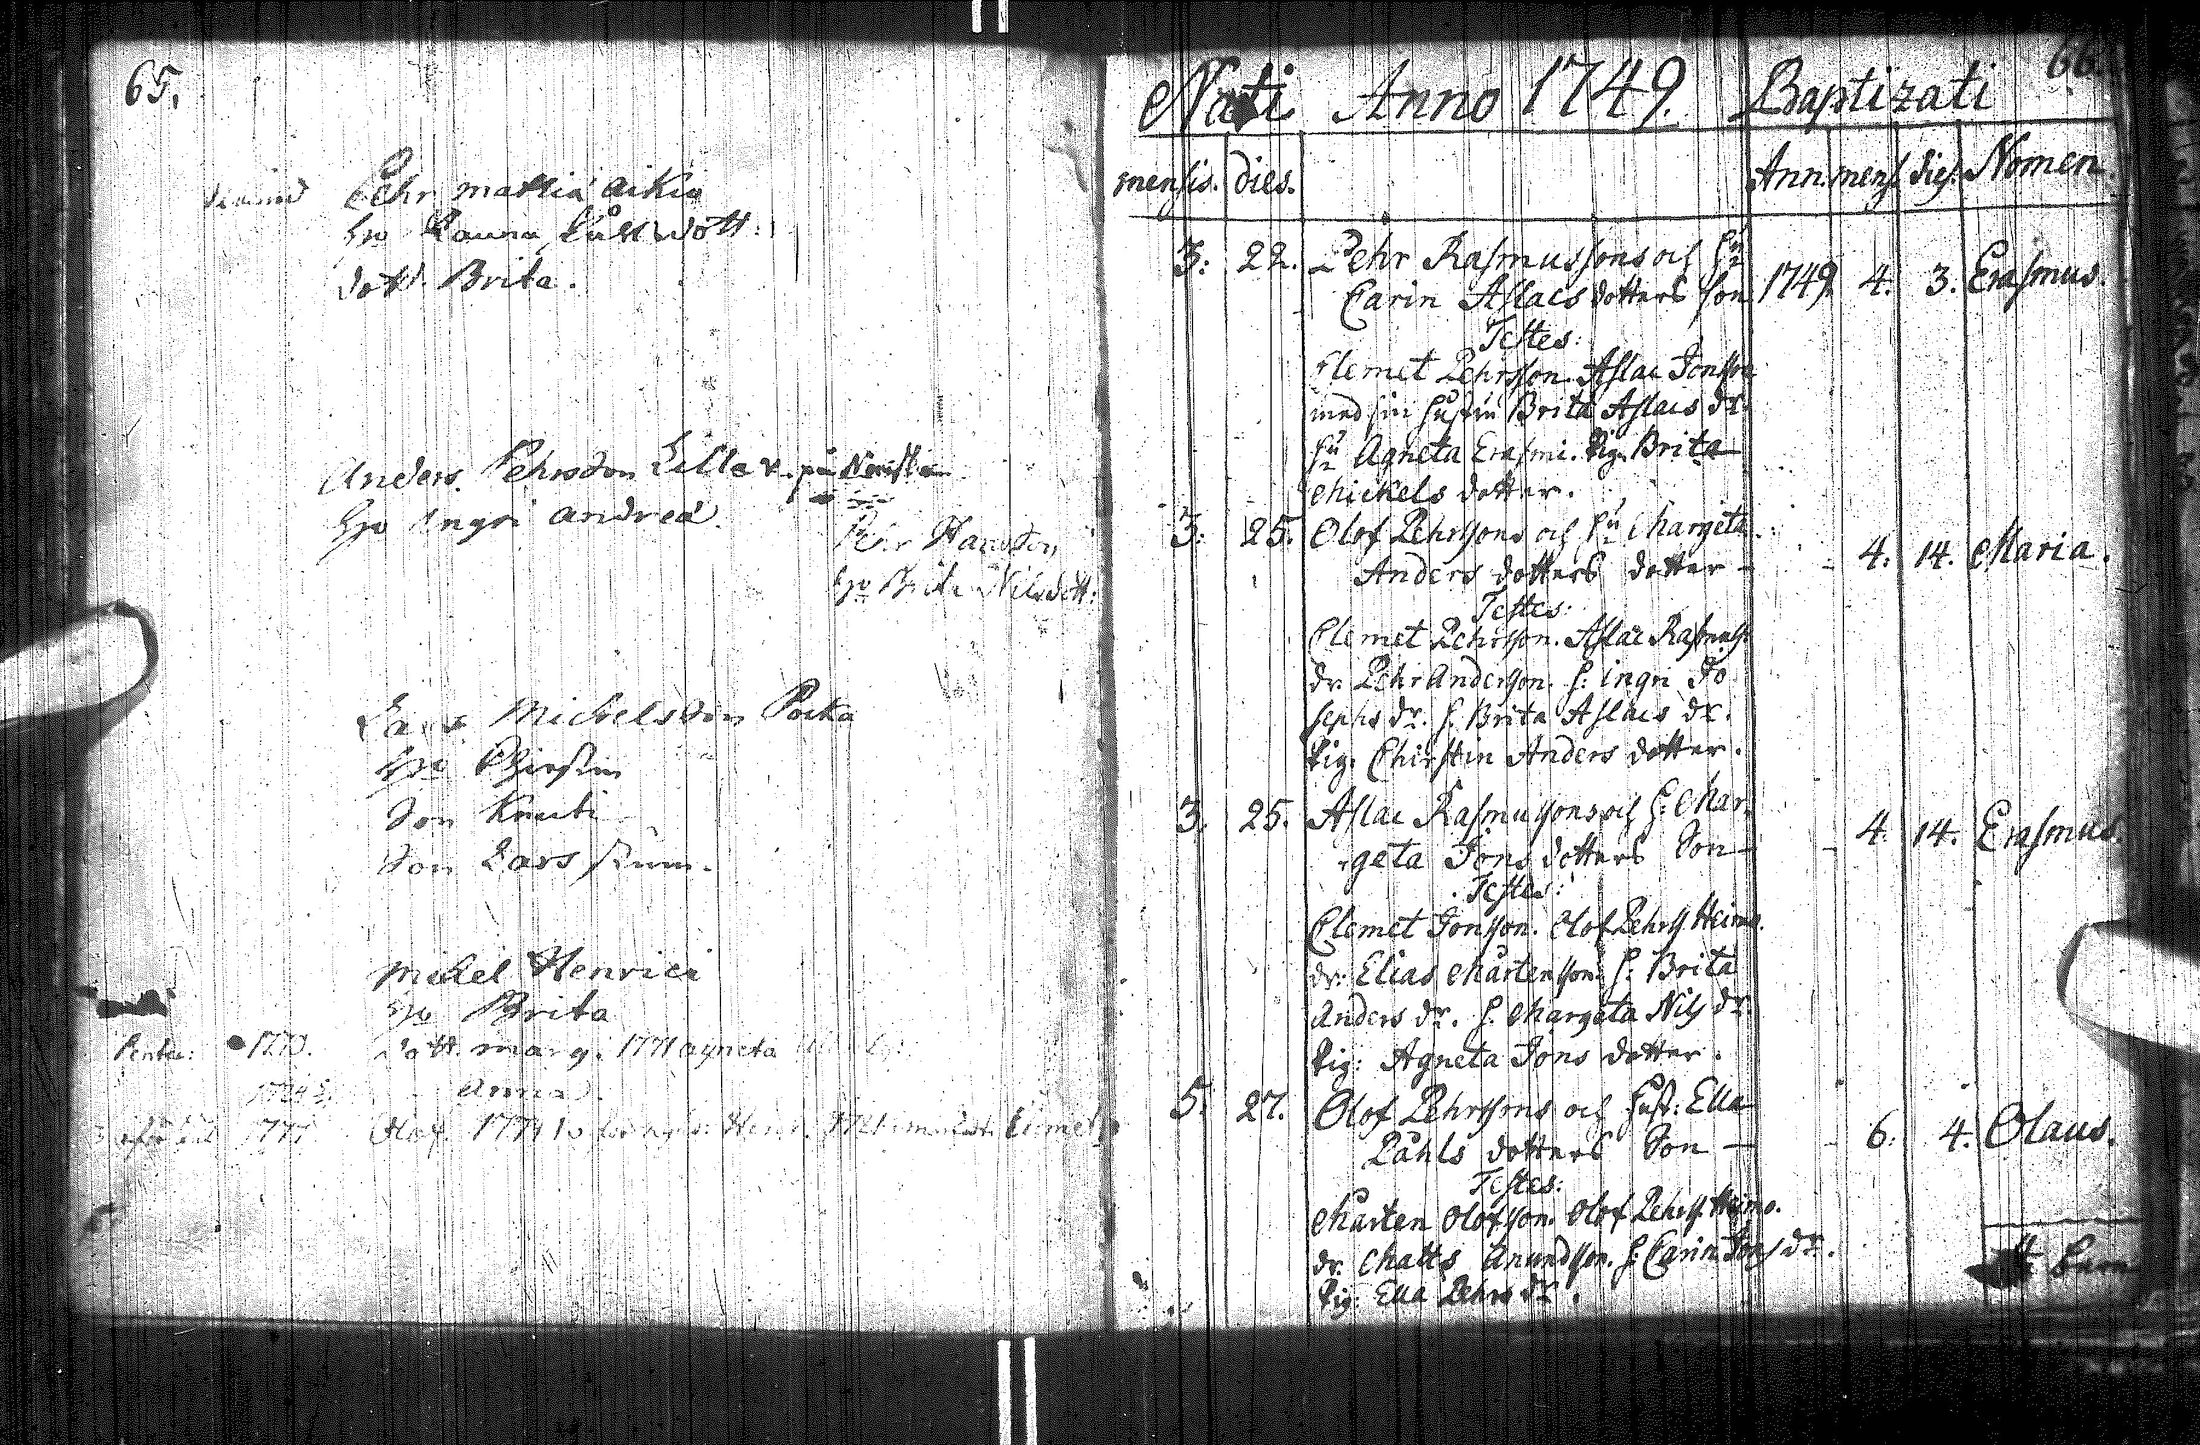 65.
Pehr mattia aikio
ho Launa Påll dott:
dott. Brita.
Anders. Pehrsson Lilla på
ho Ingri andrea.
Pehr Hansson
ho Brita Nilsdott:
Lars Mickelsson Pocka
ho Chirstin
Son Knut
Son Lars
Michel Henrici
ho Brita
1773. Dott. marg. 1771 agneta
Anna
Olof. 1771
66.
Nati Anno 1749. Baptizati
mensis. dies. Ann. mens. dies. Nomen.
3: 22. Pehr Rasmussons och hu
Carin Aslacs dotters son 1749 4. 3. Erasmus.
Testes:
Clemet Pehrsson. Aslac Jonsson
med sin hustru Brita Aslacs dr.
hu Agneta Erasmi. Pig. Brita
Mickels dotter.
3: 25. Olof Pehrssons och hu Margeta
Anders dotters dotter - - 4. 14. Maria.
Testes:
Clemet Pehrsson. Aslac Rasmuss.
dr. Pehr Andersson. h: ingri Jo
sephs dr. h. Brita Aslacs dr.
Pig. Chirstin Anders dotter.
3. 25. Aslac Rasmussons och h: Mar-
geta Jons dotters Son - - 4. 14. Erasmus.
Testes:
Clemet Jonsson. Olof Pehrss. Heimo.
dr: Elias Mårtensson. h: Brita
Anders dr. h. Margeta Nils dr.
Pig: Agneta Jons dotter.
5. 27. Olof Pehrssons och hust: Ella
Påhls dotters Son - - 6. 4. Olaus.
Testes:
Mårten Olofsson. Olof Pehrss. Heimo.
dr. Matts Anundsson. h: Carin Jons dr.
Pig: Ella Pehrs dr.